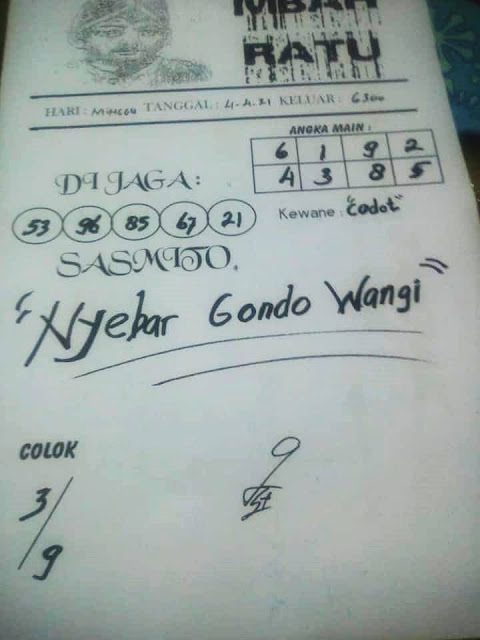 MBAH
RATU
HARI : MINGGU TANGGAL : 4-4-21 KELUAR : 6300
ANGKA MAIN :
6 1 9 2
4 3 8 5
DI JAGA :
53 96 85 67 21
Kewane : "Codot"
SASMITO.
"Nyebar Gondo Wangi"
COLOK
3/9
9